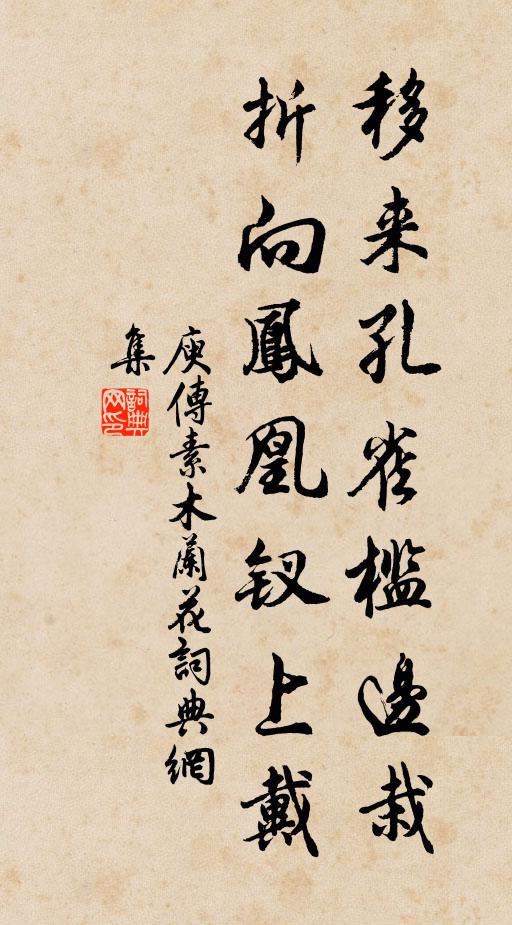 移来孔雀檻邊栽
折向鳳凰釵上戴
庾傳素木蘭花詞典網
集
詞典网印